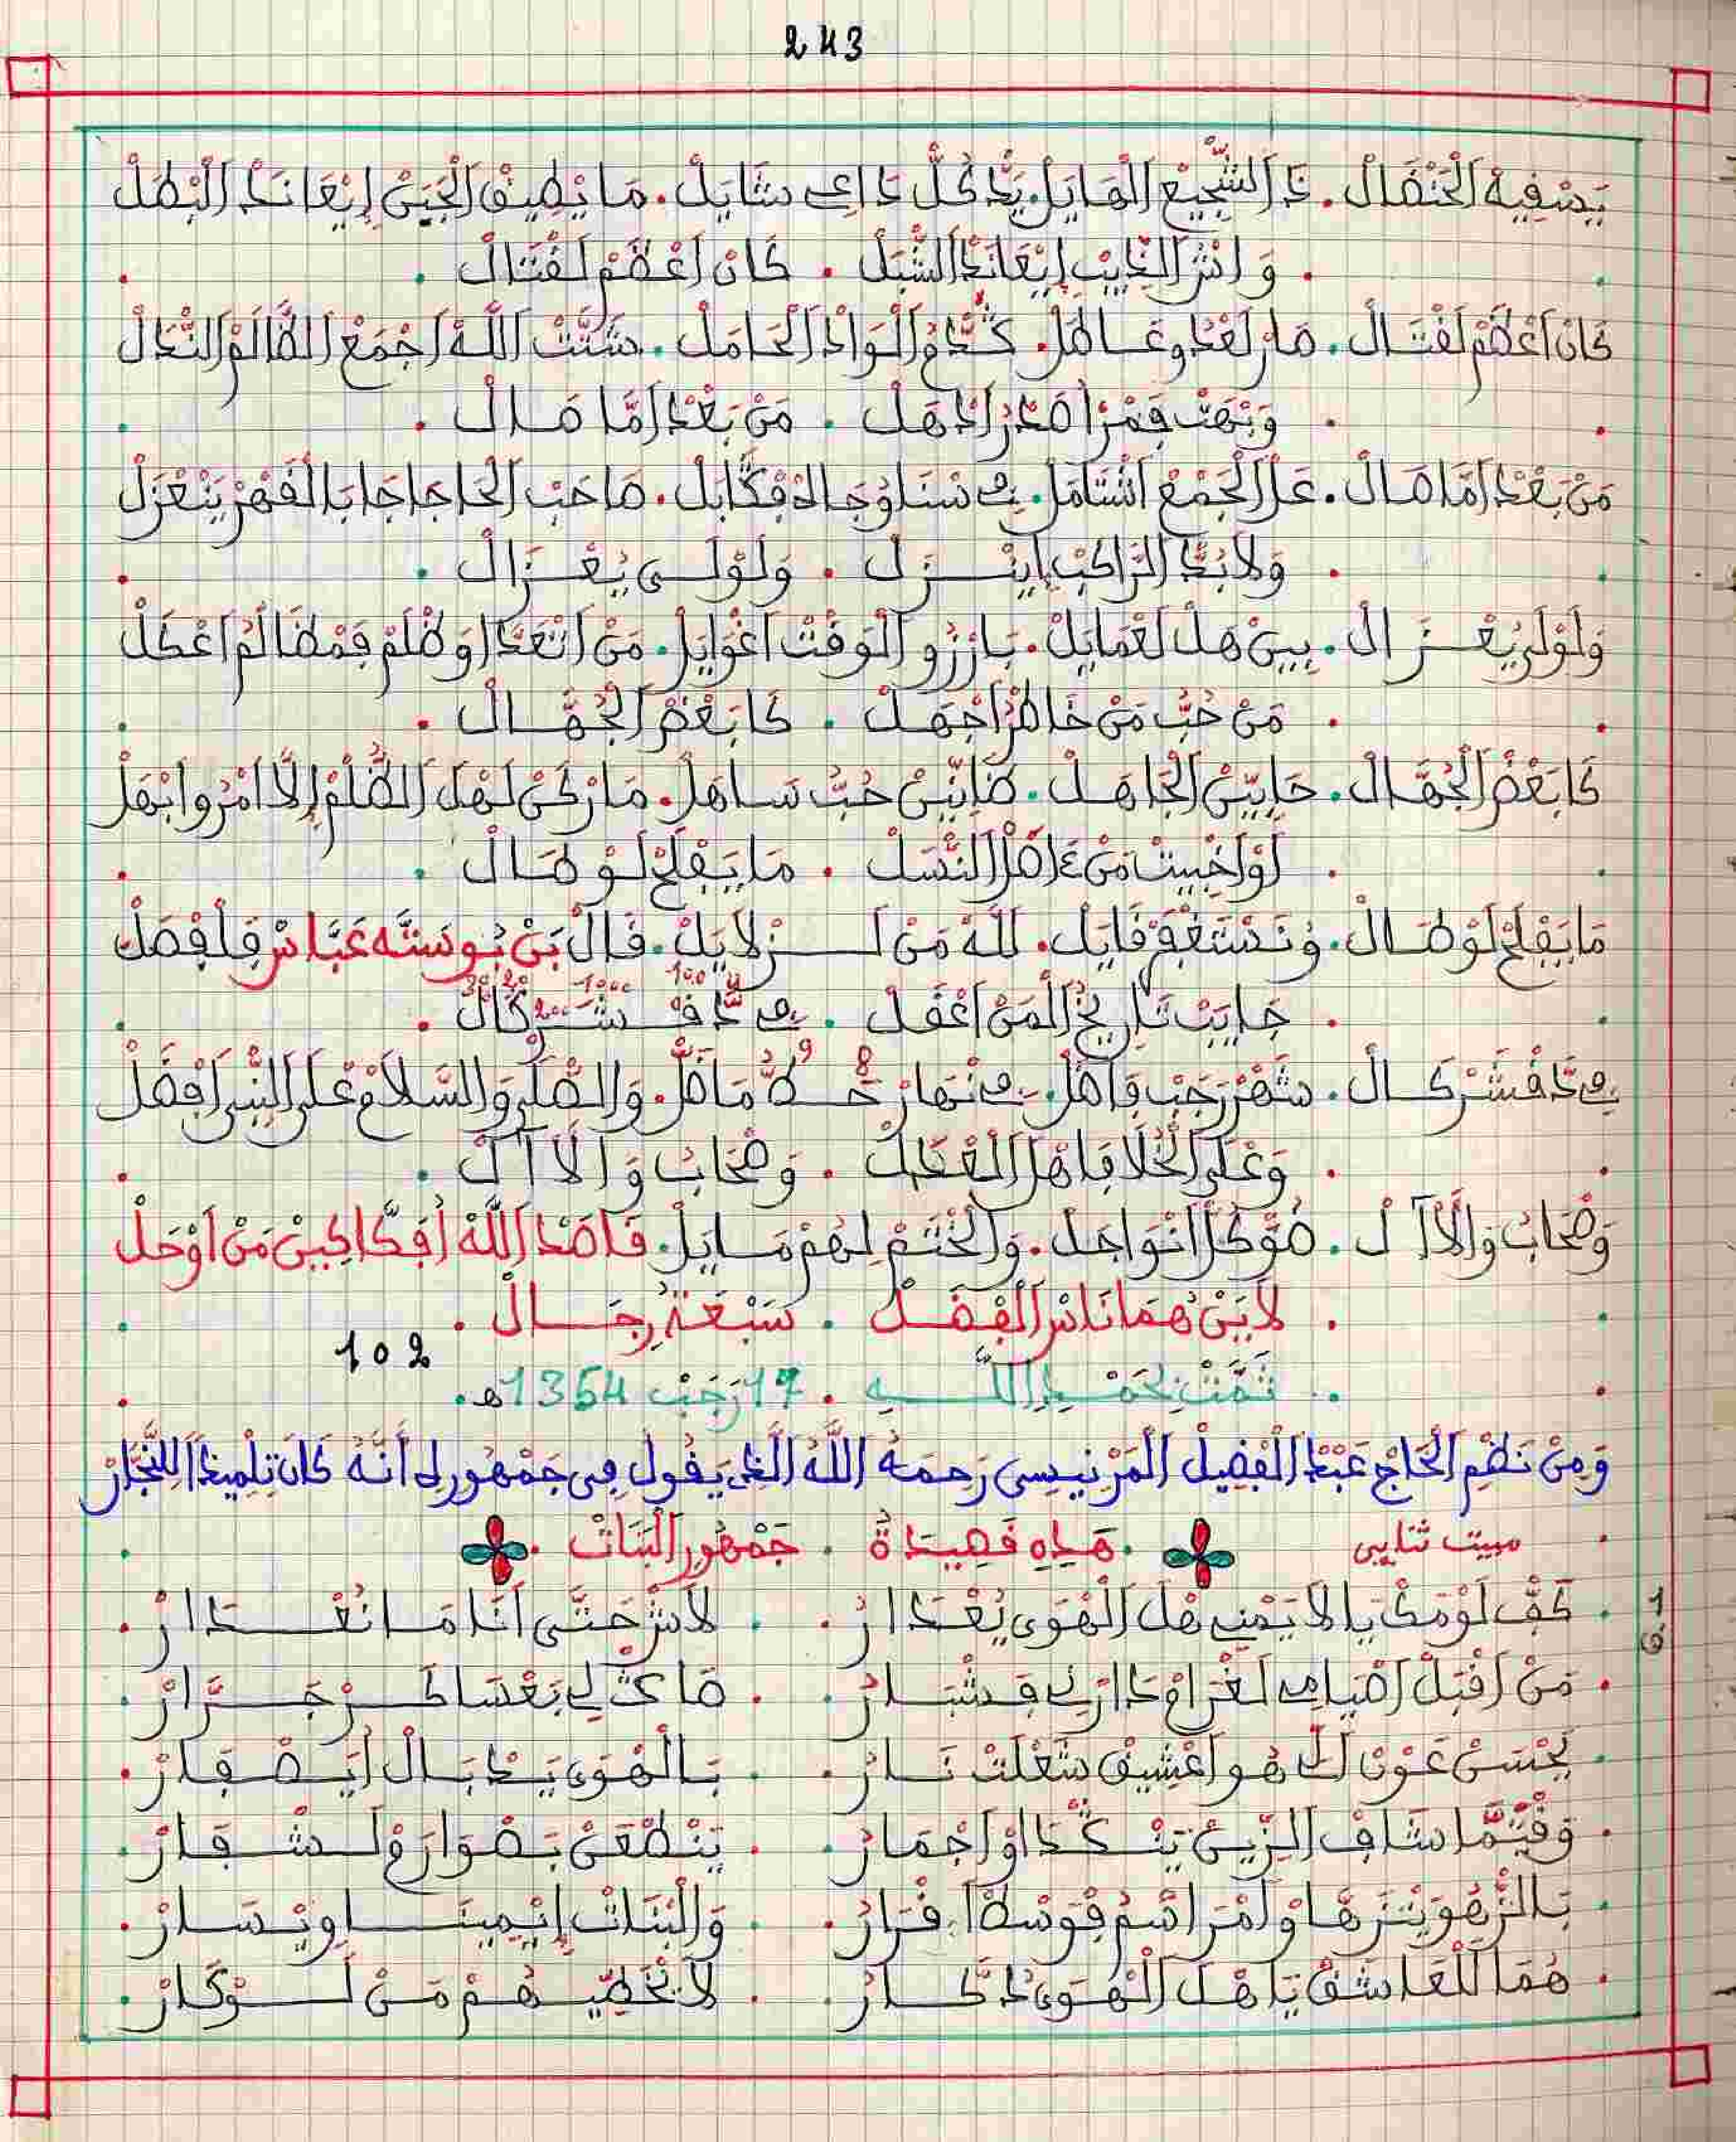 243
يَسْفِيهْ الْحَنْضَالْ. ذَا الشّجِيعْ الْهَايَلْ. يَدْ كُلّْ دَاعِي شَايَلْ. مَا يْطِيقْ الْجَبَنْ إِيْعَانَدْ الْبْطَلْ
. وَانْثَرْ الذِّيبْ إِيْعَانَدْ الشّْبَلْ . كَانْ أَعْظَمْ لَفْتَالْ .
كَانْ أَعْظَمْ لَفْتَالْ. صَارْ لَعْدُو عَاطَلْ. كُدَّامْ الْوَادْ الْحَامَلْ. شَتَّتْ اللَّهْ اجْمَعْ الظَّالَمْ النّْدَالْ
. وَبْهَتْ فَمْرَاصْدُ رَادْهَلْ . مَنْ بَعْدْ امَّا صَالْ .
مَنْ بَعْدْ امَّا صَالْ. عَلْ الْجَمْعْ اشْتَامَلْ. فِي سْنَاوْجَالَدْ فَكْبَايَلْ. صَاحَبْ الْحَاجَا جَا بَالْقَهْرْ يَنْعْزَلْ
. وَلَابُدّْ الرَّاكَبْ اِينْزَلْ . وَلَوْلَى يُعْزَالْ .
وَلَوْلَى يُعْزَالْ. بِينْ هَلْ لَعْمَايَلْ. بَارْزُو الْوَقْتْ اغْوَايَلْ. مَنْ اتْعَدَّا وَظْلَمْ فَمْظَالْمُ اعْكَلْ
. مَنْ حُبّْ مَنْ خَاطْرُ اجْهَلْ . كَابَعْضْ الْجُهَّالْ .
كَابَعْضْ الْجُهَّالْ. حَايْنِينْ الْجَاهَلْ. ظَانِّينْ حُبّْ سَاهَلْ. مَا رْكَنْ لَهْلْ الظُّلْمْ إِلَّا امْرُو ابْهَلْ
. لَوْ اخْبِيتْ مَنْ اصْلْ النّْسَلْ . مَا يَفْلَحْ لَوْ طَالْ .
مَا يَفْلَحْ لَوْ طَالْ. وُنَسْتَغْفَرْ قَايَلْ. للَّهْ مَنْ لَزْلَايَلْ. قَالْ بَنْ بُوسَتَّه عَبَّاسْ فَلْفْصَلْ
. جَايَبْ تَارِيخْ الْمَنْ اغْفَلْ . فِي نَدْ قْ شَرْكَالْ .
فِي نَدْ قْشَرْكَالْ. شْهَرْ رَجَبْ فَاصَلْ. فِي نْهَارْ حَطّْ مَاصَلْ. وَالصّْلَى وَالسَّلَامْ عْلَى النّْبِي افْضَلْ
. وَعْلَى الْخُلَافَا هْلْ الْعْدَلْ . وَصْحَابُ وَالَاآلْ .
وَصْحَابُ وَالَاآلْ. صُوّكَلْ انْوَاجَلْ. وَالْخْتَمْ لِهُمْ سَايَلْ. قَاصْدْ اللَّهْ أُفَكَّاكِينْ مَنْ اوْحَلْ
. لَايَنْ هُمَا نَاسْ الْفْضَلْ . سَبْعَةُ رِجَالْ .
102
تَمَّتْ بِحَمْدِ اللَّهِ . 17 رَجَبْ 1354هـ.
وَمِنْ نَظْمِ الْحَاجّْ عَبْدْ الْفْضِيلْ الْمَرْنِيسِي رَحِمَهُ اللَّهُ الَّذِي يَقُولُ فِي جَمْهُورِلِي أَنَّهُ كَانَ تِلْمِيذَا لِلنَّجَّارْ
مبيت ثنايي هَذِهِ قَصِيدَةُ . جَمْهُورْ الْبَنَاتْ .
. كَفّْ لَوْمَكْ يَا لَايَمْنِي هْلْ الْهْوَى يُعْدَارْ . لَاشْ حَتَّى أَنَا مَا نُعْدَارْ .
. مَنْ اقْبَلْ اصْيَامِي لَغْرَامْ دَارْ لِي فَشَّارْ . صَاكْ لِي بَعْسَاكَرْ جَرَّارْ .
. يَحْسَنْ عَوْنْ اللِّي هُو اعْشِيقْ شَعْلَتْ نَارْ . بَالْهْوَى يَدْبَالْ أَيَصْفَارْ .
. وَقْتَمَّا شَافْ الزِّينْ يَنْكْدَا وْ اجْمَارْ . يَنْطْعَنْ بَصْوَارَمْ لَشْفَارْ .
. بَالزّْهُو يَنْزَهَّا وْلَمْرَاسَمْ فَوَسْطْ اقْرَارْ . وَالْبْنَاتْ اِيْمِينَا وِيْسَارْ .
. هُمَا لْلْعَاشَقْ يَا هْلْ الْهْوَى دْكَّارْ . لَا تْخَطِّيهُمْ مَنْ لَوْكَارْ .